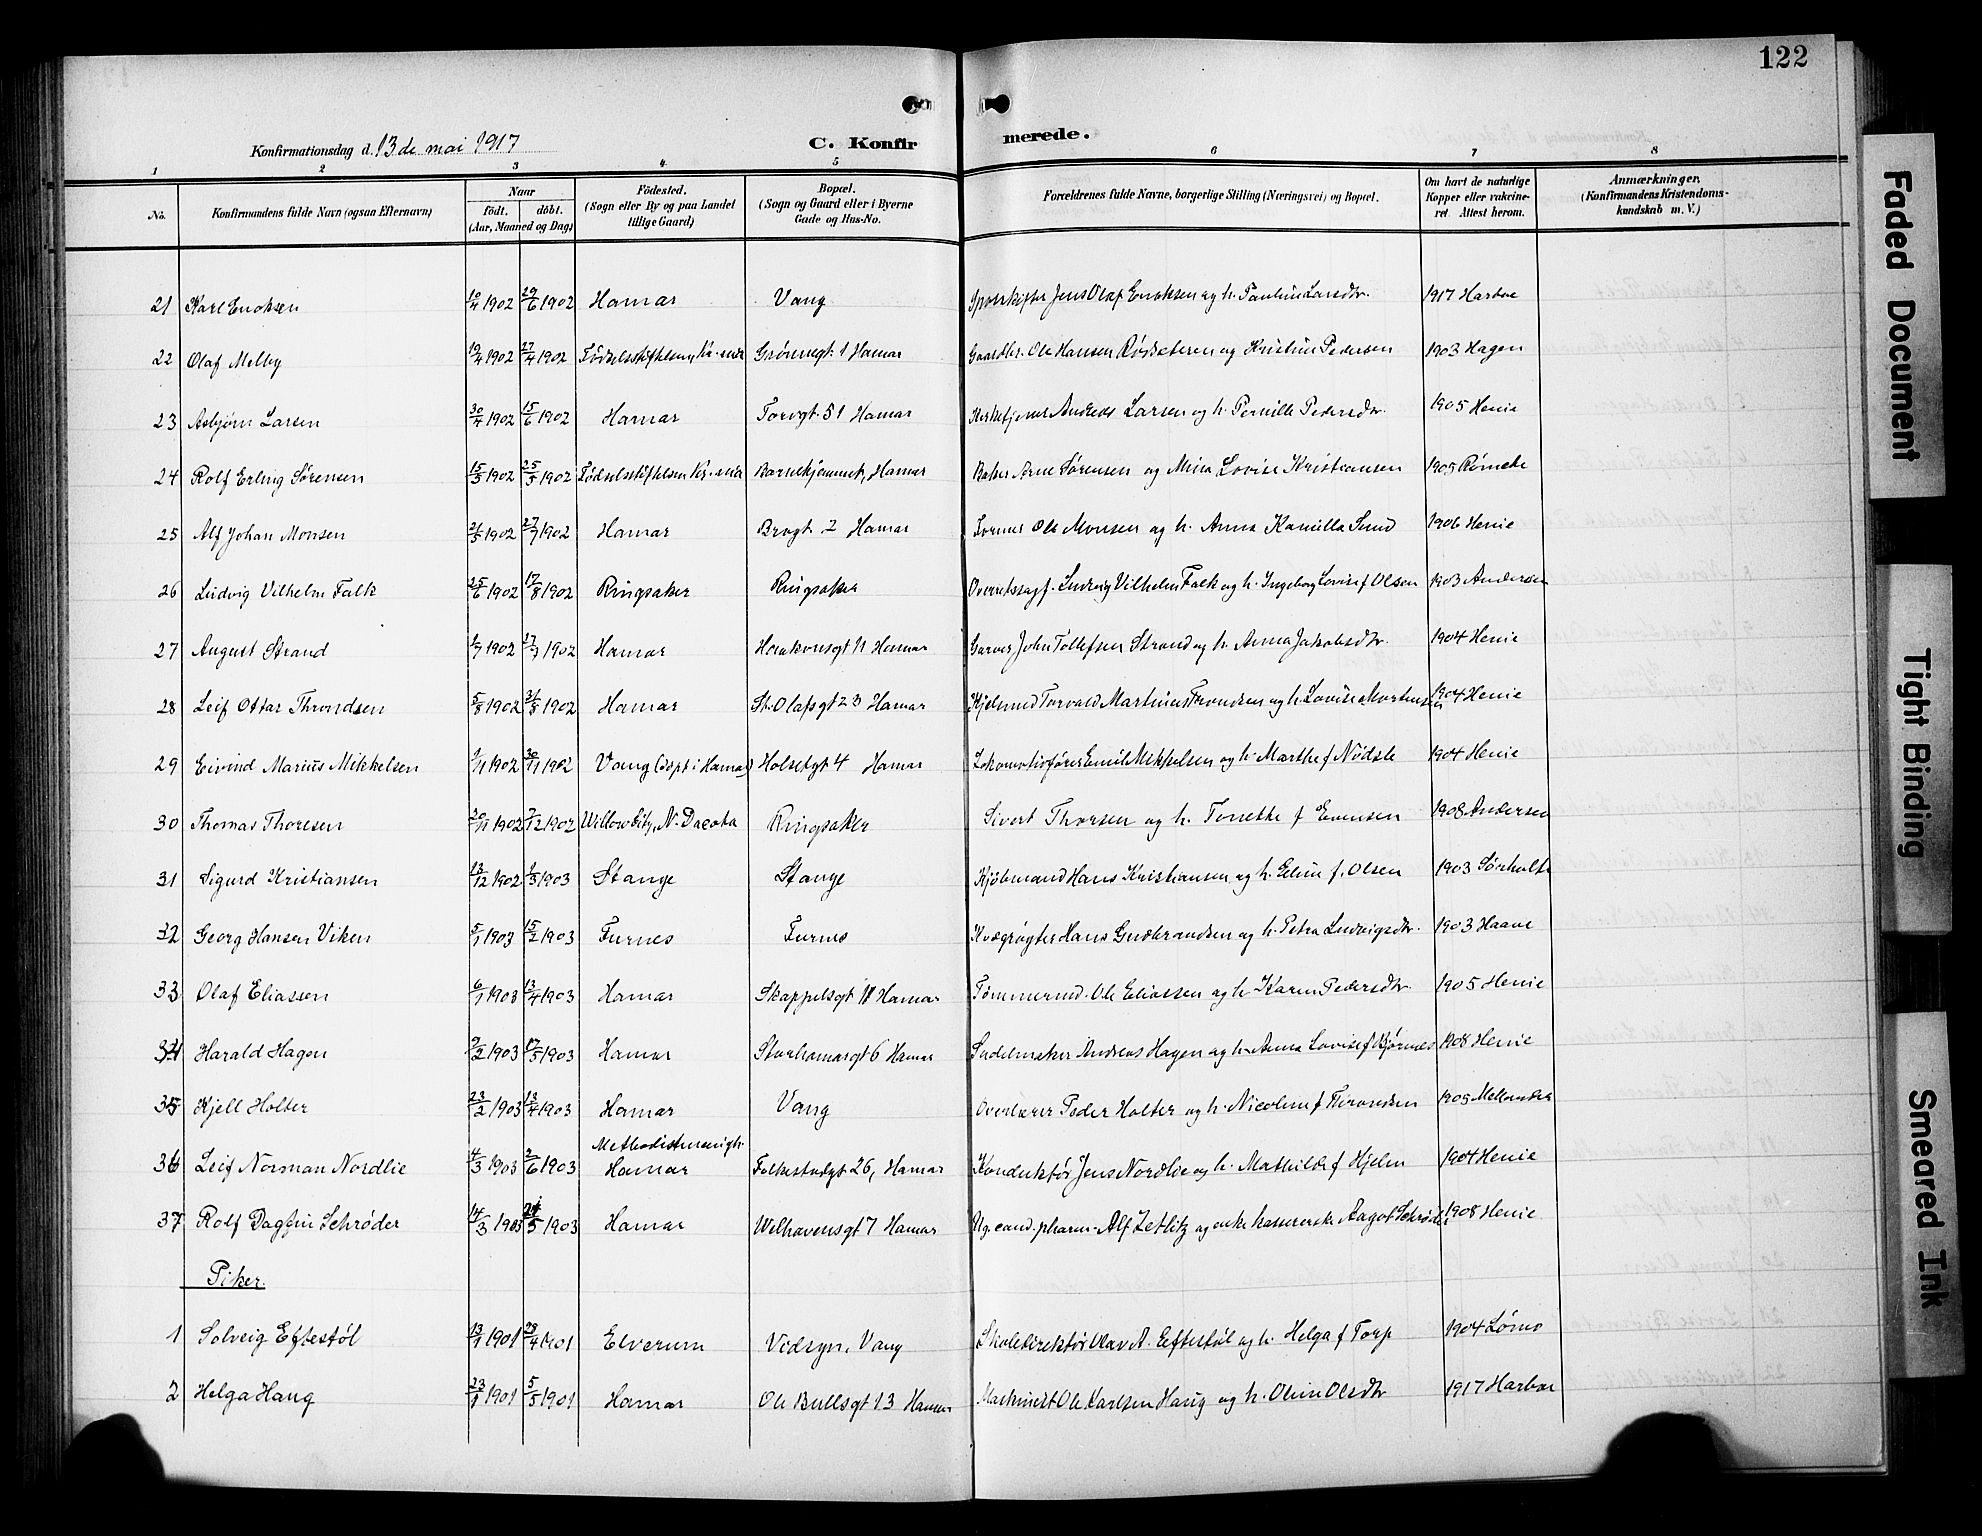 122
Konfirmationsdag d. 13de mai 1917
C. Konfirmerede.
1 2 3 4 5 6 7 8
No. Konfirmandens fulde Navn (ogsaa Efternavn) Naar födt. döbt. (Aar, Maaned og Dag) Födested. (Sogn eller By og paa Landet tillige Gaard) Bopæl. (Sogn og Gaard eller i Byerne Gade og Hus-No. Forældrenes fulde Navne, borgerlige Stilling (Næringsvei) og Bopæl. Om havt de naturlige Kopper eller vakcineret. Attest herom. Anmærkninger. (Konfirmandens Kristendomskundskab m. V.)
21 Karl Enoksen 10/4 1902 29/6 1902 Hamar Vang Jens Olaf Enoksen og h. Pauline Larsdtr. 1917 Harboe
22 Olaf Melby 19/4 1902 27/4 1902 Födselsstiftelsen, Kr.-nia Grönnegt. 1 Hamar Gaardbr. Ole Hansen og Kristine Pedersen 1903 Hagen
23 Asbjørn Larsen 30/4 1902 15/6 1902 Hamar Torvgt. 51 Hamar Kirketjener Andreas Larsen og h. Pernille Pedersdtr. 1905 Henie
24 Rolf Erling Sørensen 15/5 1902 25/5 1902 Födselsstiftelsen Kr.-nia Barnehjemmet, Hamar Baker Arne Sørensen og Mina Lovise Kristiansen 1905 Rømcke
25 Alf Johan Monsen 21/5 1902 27/7 1902 Hamar Brogt. 2 Hamar Ole Monsen og h. Anna Kamilla Lund 1906 Henie
26 Ludvig Vilhelm Falk 25/6 1902 17/8 1902 Ringsaker Ringsaker Overretssagf. Ludvig Vilhelm Falk og h. Ingeborg Lovise f Olsen 1903 Andersen
27 August Strand 2/7 1902 27/7 1902 Hamar Haakonsgt 11 Hamar Garver John Tollefsen Strand og h. Anna Jakobsdtr 1904 Henie
28 Leif Ottar Throndsen 5/8 1902 31/8 1902 Hamar St. Olafsgt 23 Hamar Torvald Martinius Throndsen og h. Lovise Mortensen 1904 Henie
29 Eivind Marius Mikkelsen 2/11 1902 30/11 1902 Vang (döpt i Hamar) Holsetgt 4 Hamar Lokomotivförer Emil Mikkelsen og h. Marthe f Nødsle 1904 Henie
30 Thomas Thoresen 20/11 1902 7/12 1902 Willow City, N. Dacota Ringsaker Sivert Thorsen og h. Tonette f Evensen 1908 Andersen
31 Sigurd Kristiansen 13/12 1902 1/3 1903 Stange Stange Kjöbmand Hans Kristiansen og h. Eline f. Olsen 1903 Sørholte
32 Georg Hansen Viken 5/1 1903 15/2 1903 Furnes Furnes Kvægrøgter Hans Gudbrandsen og h. Petra Ludvigsdtr. 1903 Haave
33 Olaf Eliassen 6/1 1903 13/4 1903 Hamar Skappelsgt 11 Hamar Tømmermd. Ole Eliassen og h Karen Pedersdtr. 1905 Henie
34 Harald Hagen 9/2 1903 17/5 1903 Hamar Storhamargt 6 Hamar Sadelmaker Andreas Hagen og h. Anna Lovise f Bjørnes 1908 Henie
35 Kjell Holter 23/2 1903 13/4 1903 Hamar Vang Overlærer Peder Holter og h. Nicoline f Throndsen 1905
36 Leif Norman Nordlie 4/3 1903 2/6 1903 Methodistmenigh. Hamar Falkestadgt 26, Hamar Konduktör Jens Nordlie og h. Mathilde f Hjelm 1904 Henie
37 Rolf Dagfin Schrøder 14/3 1903 21/5 1903 Hamar Welhavensgt 7 Hamar Ug. cand. pharm. Alf Zetlitz og enke kassererske Aagot Schrøder 1908 Henie
Piker.
1 Solveig Eftestöl 13/1 1901 28/4 1901 Elverum Vidsyn, Vang Skoledirektör Olav A. Eftestöl og h. Helga f Torp 1904 Lømo
2 Helga Haug 23/1 1901 5/5 1901 Hamar Ole Bullsgt 13 Hamar Maskinist Ole Karlsen Haug og h. Oline Olsdtr 1917 Harboe
Faded Document
Tight Binding
Smeared Ink